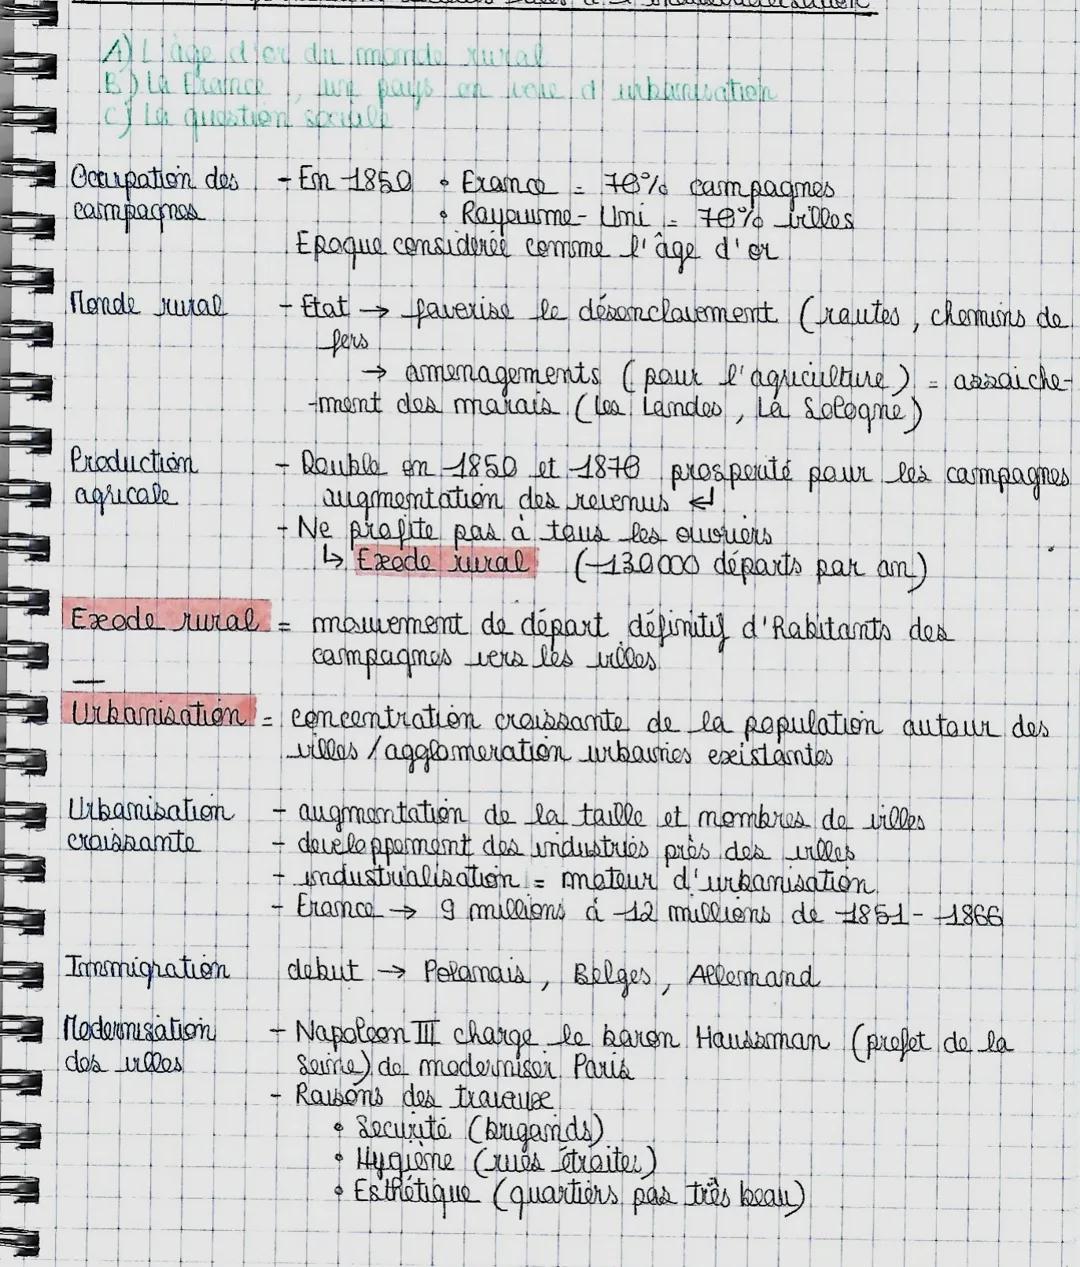 A) L'âge d'or du monde rural
B) La France, une pays en voie d'urbanisation
C) La question sociale
Occupation des campagnes - En 1850 • France = 70% campagnes
• Royaume-Uni = 70% villes
Epoque considérée comme l'âge d'or
Monde rural - Etat → favorise le désenclavement (routes, chemins de
fers
→ amenagements (pour l'agriculture) = assaiche-
-ment des marais (les Landes, La Sologne)
Production agricole - Double en 1850 et 1870 prosperité pour les campagnes
augmentation des revenus ↵
- Ne profite pas à tous les ouvriers
↳ Exode rural (-130000 départs par an)
Exode rural = mouvement de départ définitif d'habitants des
campagnes vers les villes
Urbanisation = concentration croissante de la population autour des
villes / agglomeration urbaines existantes
Urbanisation croissante - augmentation de la taille et nombres de villes
- developpement des industries près des villes
- industrialisation = moteur d'urbanisation
- France → 9 millions à 12 millions de 1851-1866
Immigration debut → Polonais, Belges, Allemand
Modernisation des villes - Napoleon III charge le baron Haussman (prefet de la
Seine) de moderniser Paris
- Raisons des travaux
• Securité (brigands)
• Hygiène (rues étroites)
• Esthétique (quartiers pas très beau)